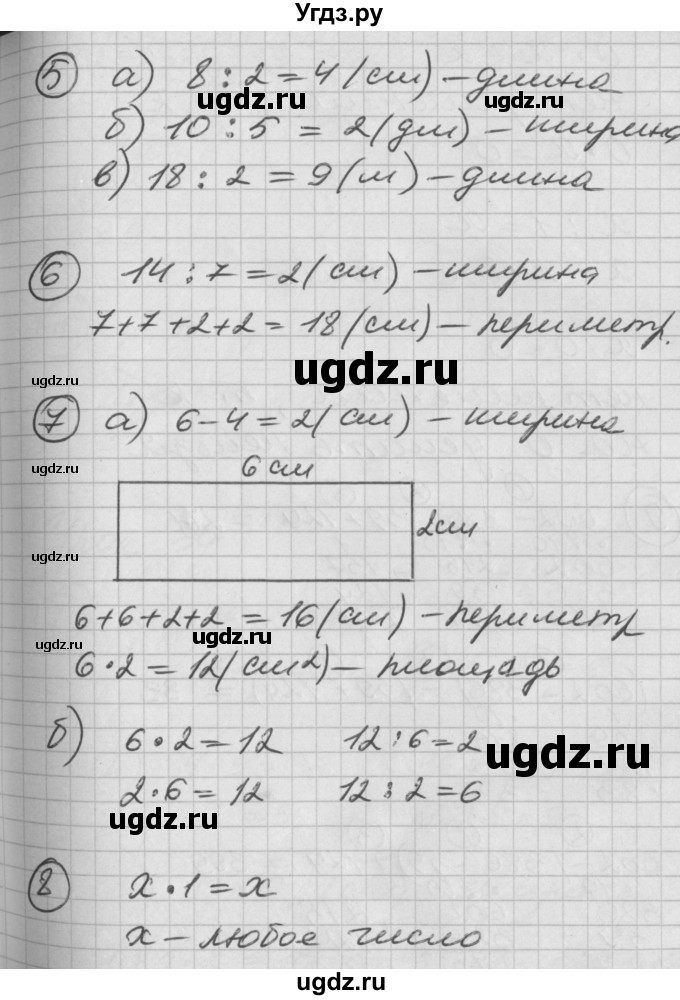 Угдз.ру
5 а) 8 : 2 = 4 (см) – длина
б) 10 : 5 = 2 (дм) – ширина
в) 18 : 2 = 9 (м) – длина
6 14 : 7 = 2 (см) – ширина
7+7+2+2 = 18 (см) – периметр.
7 а) 6 – 4 = 2 (см) – ширина
6 см
2 см
6+6+2+2 = 16 (см) – периметр
6 • 2 = 12 (см²) – площадь
б) 6 • 2 = 12 12 : 6 = 2
2 • 6 = 12 12 : 2 = 6
8 x • 1 = x
x – любое число
ugdz.ru
ugdz.ru
ugdz.ru
ugdz.ru
ugdz.ru
ugdz.ru
ugdz.ru
ugdz.ru
ugdz.ru
ugdz.ru
ugdz.ru